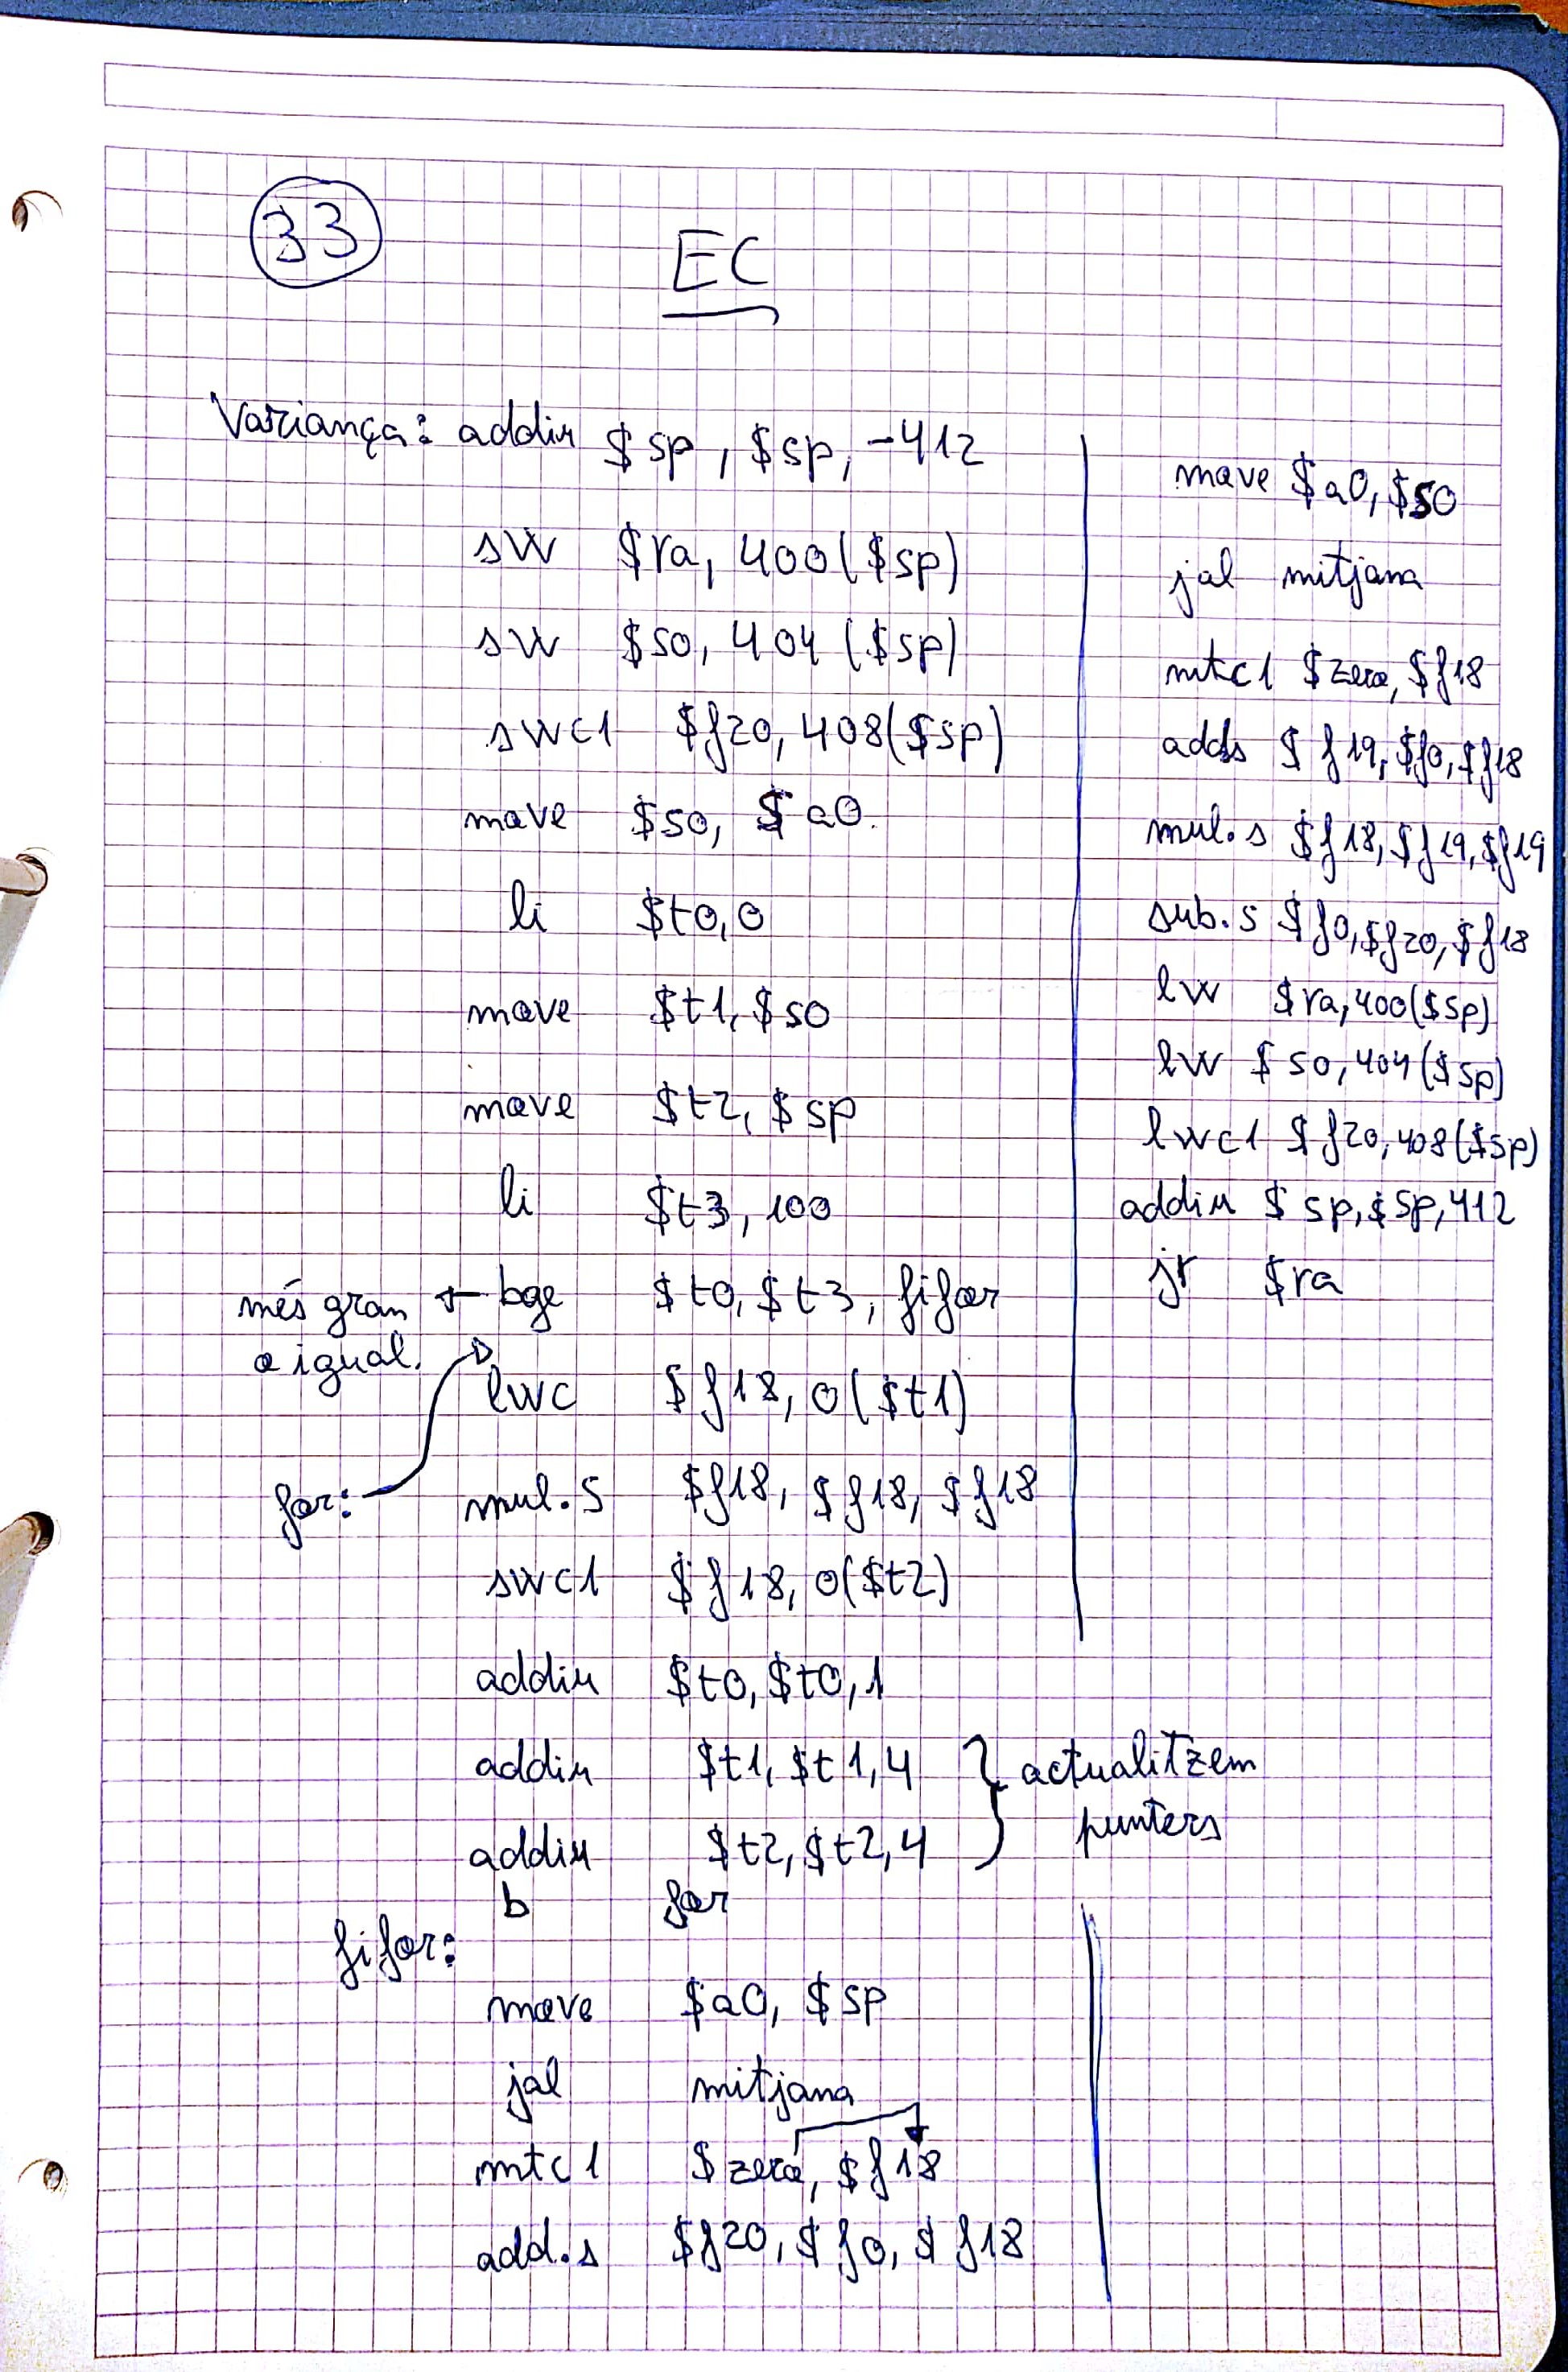 33
EC
Variança: addiu $sp, $sp, -412
sw $ra, 400($sp)
sw $s0, 404($sp)
swc1 $f20, 408($sp)
move $s0, $a0
li $t0, 0
move $t1, $s0
move $t2, $sp
li $t3, 100
més gran ← bge $t0, $t3, fifor
o igual.
lwc $f18, 0($t1)
for: mul.s $f18, $f18, $f18
swc1 $f18, 0($t2)
addiu $t0, $t0, 1
addiu $t1, $t1, 4 } actualitzem
addiu $t2, $t2, 4 punters
b for
fifor:
move $a0, $sp
jal mitjana
mtc1 $zero, $f18
add.s $f20, $f0, $f18
move $a0, $s0
jal mitjana
mtc1 $zero, $f18
adds $f19, $f0, $f18
mul.s $f18, $f19, $f19
sub.s $f0, $f20, $f18
lw $ra, 400($sp)
lw $s0, 404($sp)
lwc1 $f20, 408($sp)
addiu $sp, $sp, 412
jr $ra